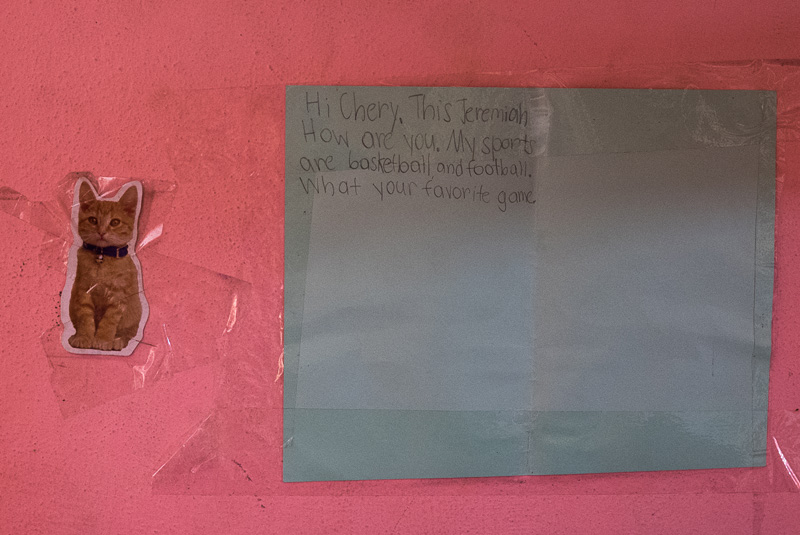 Hi Chery. This Jeremiah
How are you. My sports
are basketball and football.
What your favorite game